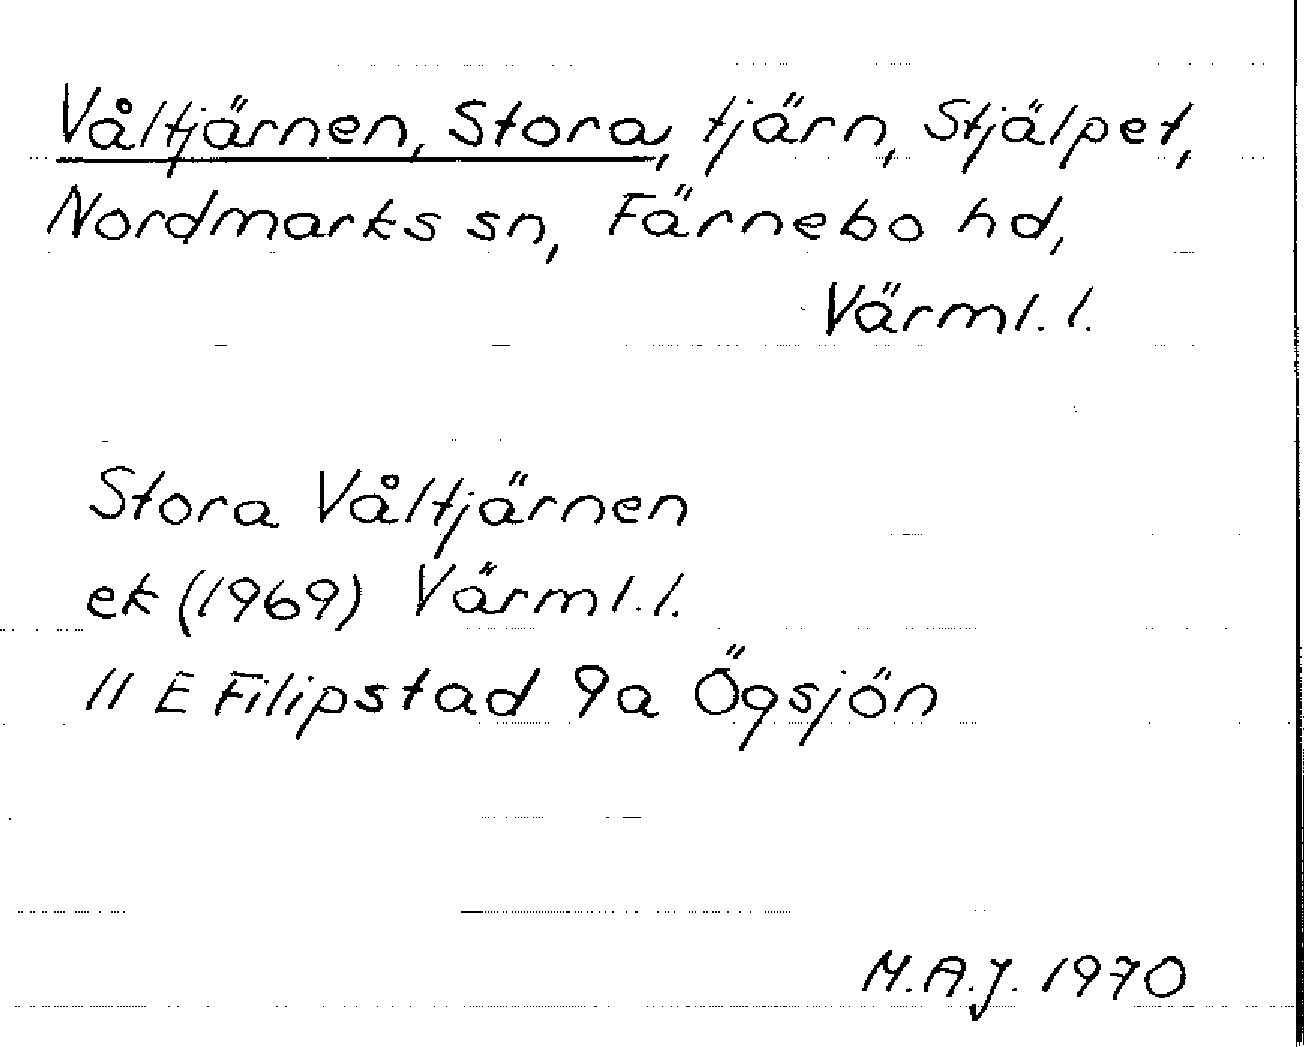 Våltjärnen, Stora, tjärn, Stjälpet,
Nordmarks sn, Färnebo hd,
Värml. l.
Stora Våltjärnen
ek (1969) Värml. l.
11 E Filipstad 9a Ögsjön
M.A.J. 1970